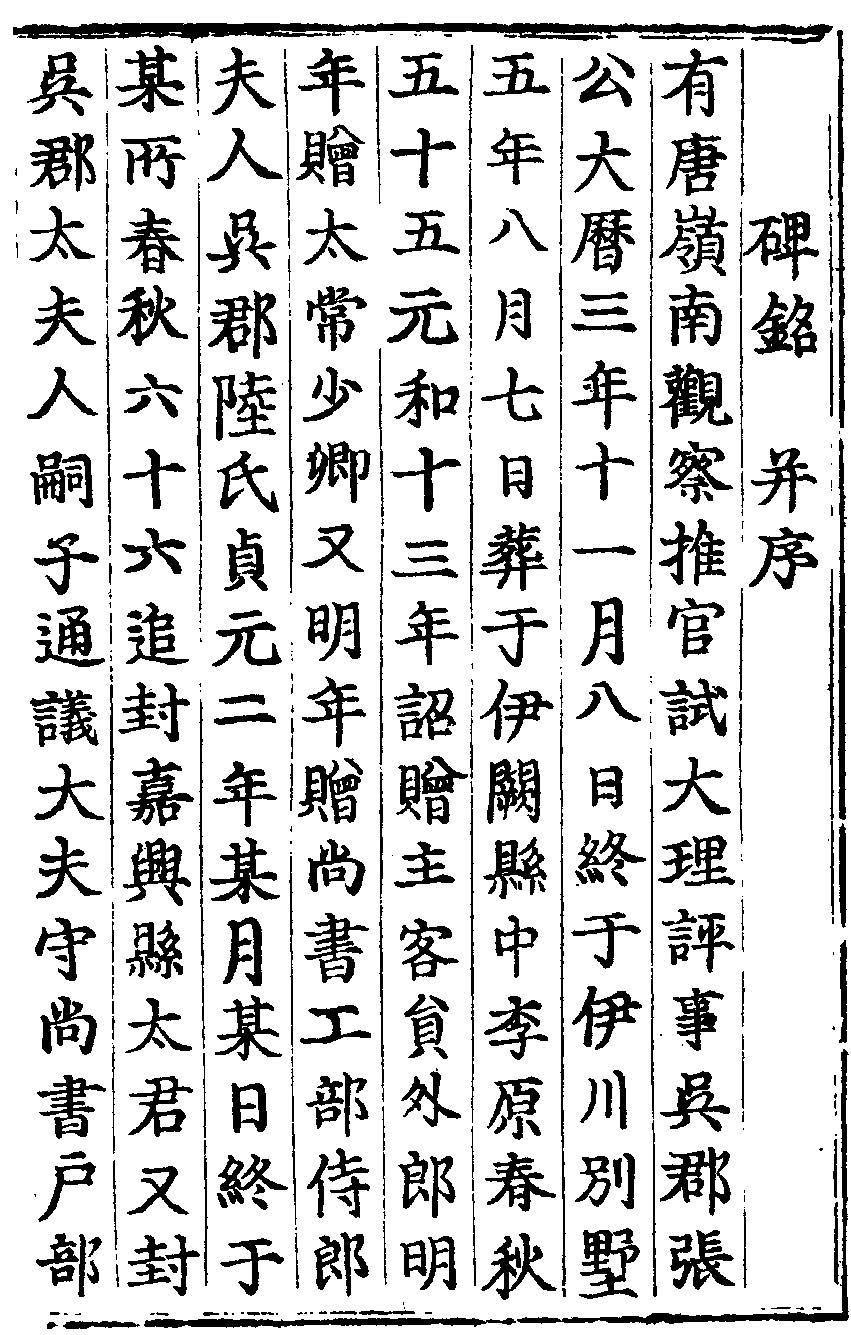 碑銘 并序
有唐嶺南觀察推官試大理評事吳郡張
公大曆三年十一月八日終于伊川別墅
五年八月七日葬于伊闕縣中李原春秋
五十五元和十三年詔贈主客貟外郎明
年贈太常少卿又明年贈尚書工部侍郎
夫人吳郡陸氏貞元二年某月某日終于
某所春秋六十六追封嘉興縣太君又封
吳郡太夫人嗣子通議大夫守尚書戶部